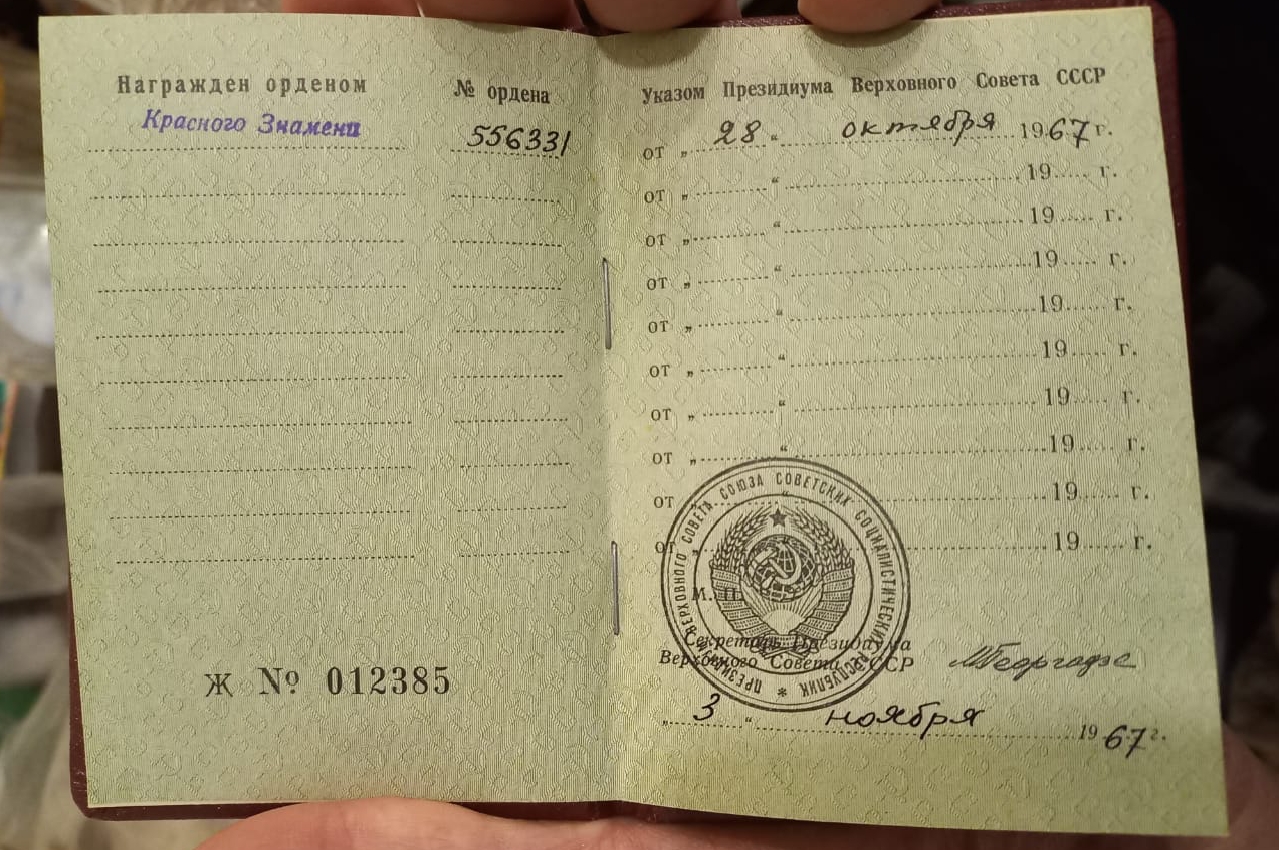 Награжден орденом
Красного Знамени
№ ордена
556331
Ж № 012385
Указом Президиума Верховного Совета СССР
от „ 28 “ октября 1967 г.
от „ “ 19 г.
от „ “ 19 г.
от „ “ 19 г.
от „ “ 19 г.
от „ “ 19 г.
от „ “ 19 г.
от „ “ 19 г.
от „ “ 19 г.
от „ “ 19 г.
ПРЕЗИДИУМ ВЕРХОВНОГО СОВЕТА СОЮЗА СОВЕТСКИХ СОЦИАЛИСТИЧЕСКИХ РЕСПУБЛИК *
М. П.
Секретарь Президиума
Верховного Совета СССР
МГеоргадзе
„ 3 “ ноября 1967 г.